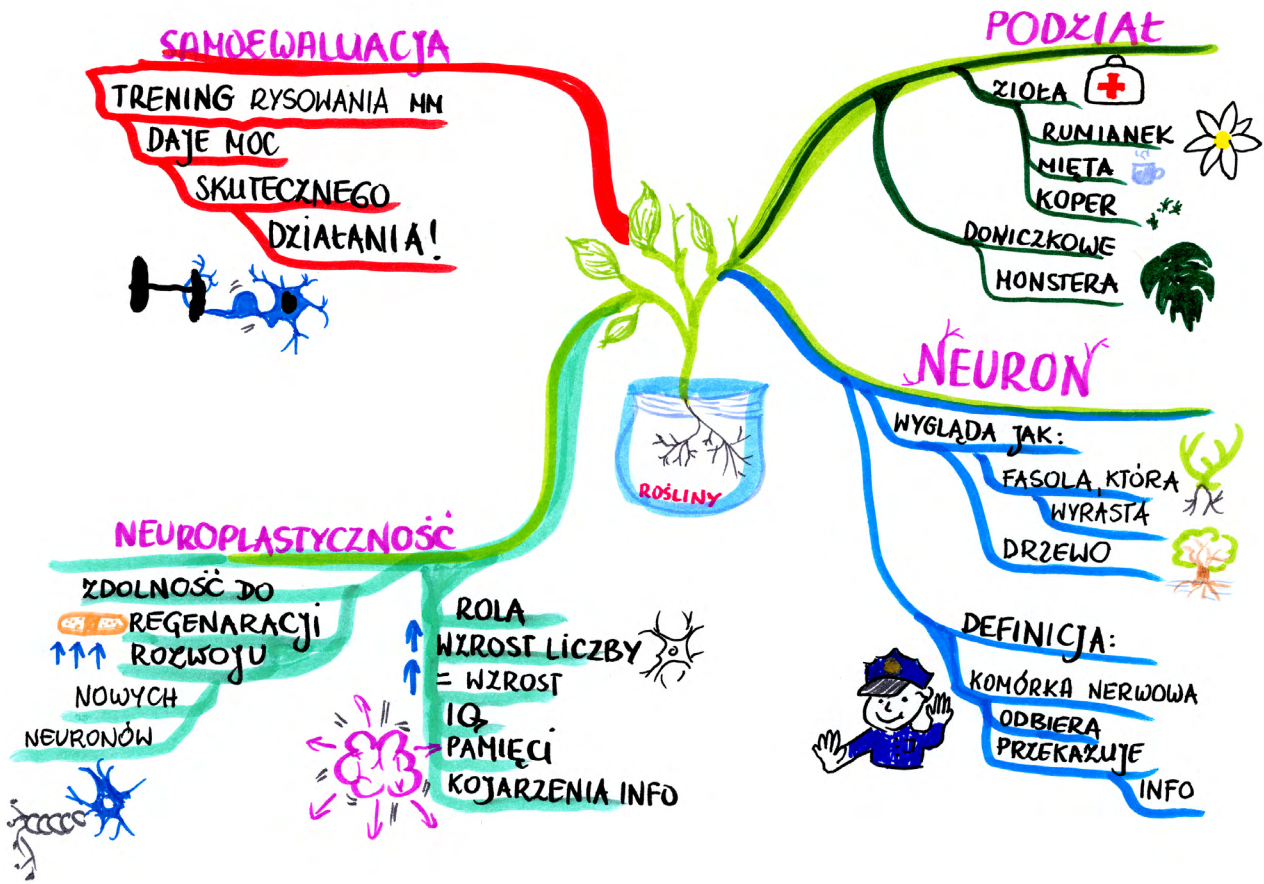 SAMOEWALUACJA
TRENING RYSOWANIA MM
DAJE MOC
SKUTECZNEGO
DZIAŁANIA!
PODZIAŁ
ZIOŁA
RUMIANEK
MIĘTA
KOPER
DONICZKOWE
MONSTERA
NEURON
WYGLĄDA JAK:
FASOLA, KTÓRA
WYRASTA
DRZEWO
DEFINICJA:
KOMÓRKA NERWOWA
ODBIERA
PRZEKAZUJE
INFO
ROŚLINY
NEUROPLASTYCZNOŚĆ
ZDOLNOŚĆ DO
REGENARACJI
ROZWOJU
NOWYCH
NEURONÓW
ROLA
WZROST LICZBY
= WZROST
IQ
PAMIĘCI
KOJARZENIA INFO